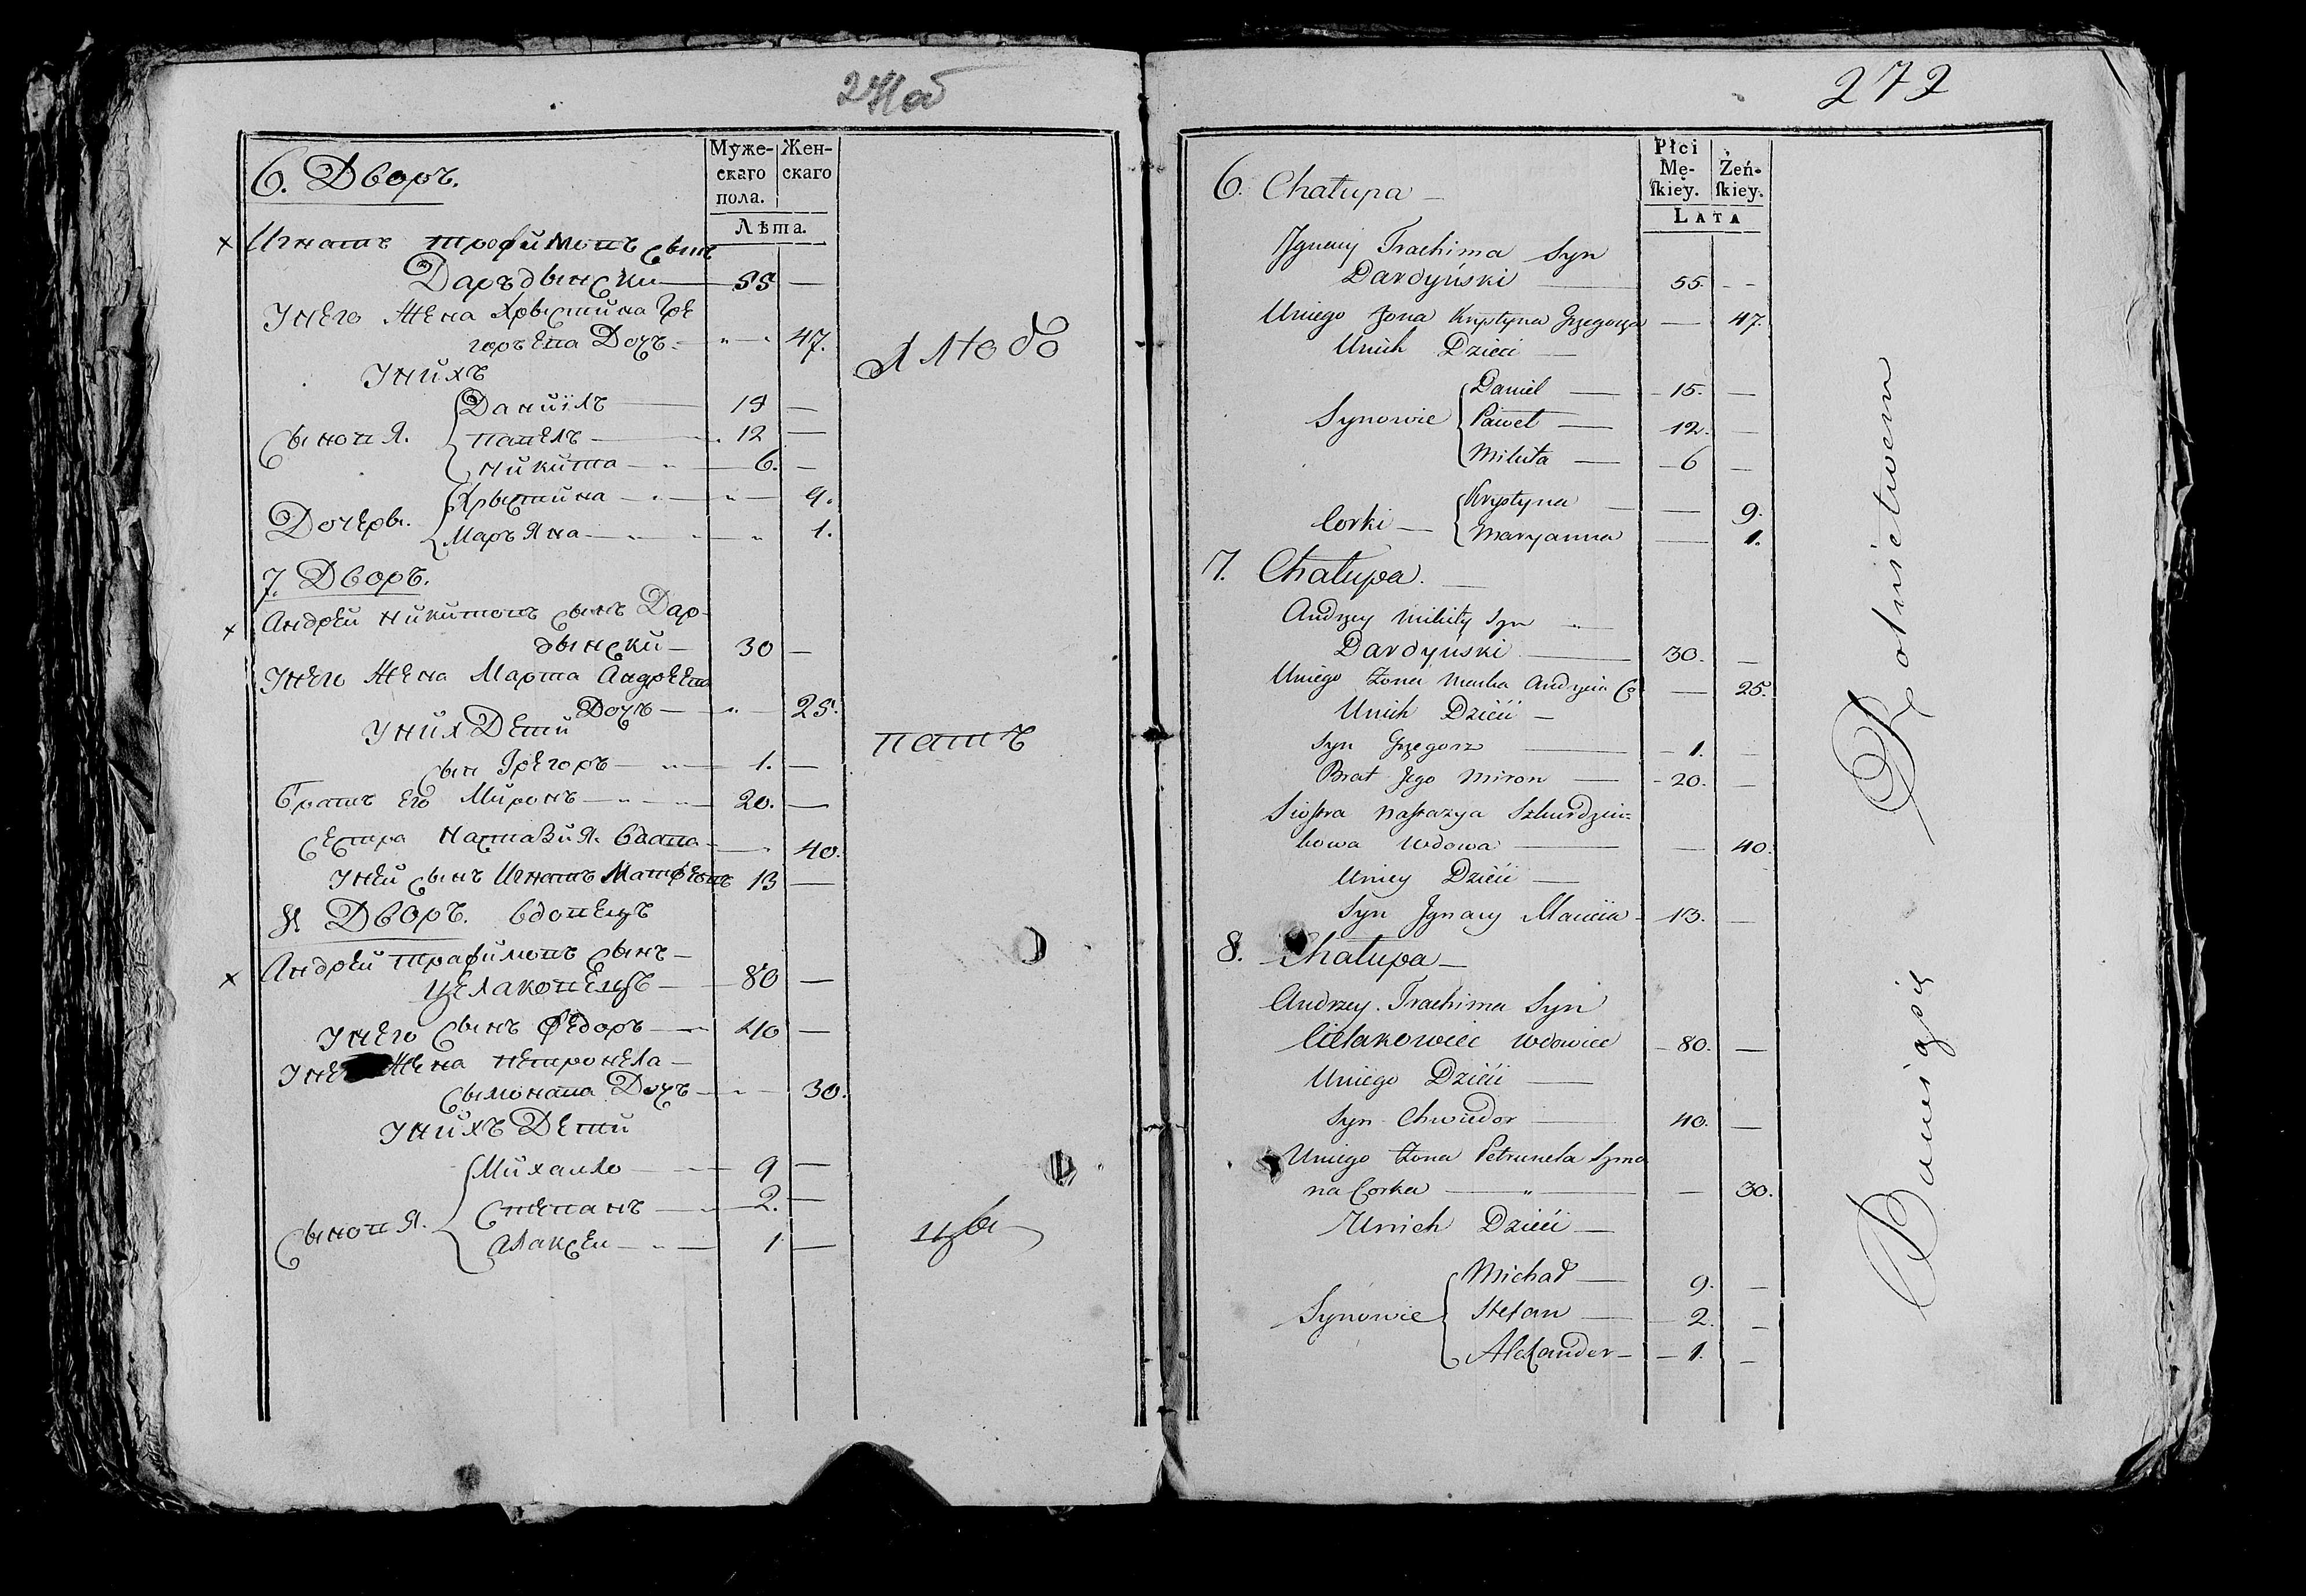 271 об
6. Дворъ.
Муже-
скаго
пола.
Жен-
скаго
Лѣта.
Игнатъ Трофимовъ сынъ
Даръдынски 55
Унего жена Хрыстина Гре
горъева Дочъ 47.
Унихъ
Сыновя.
Даниілъ 15
Павелъ 12
Никита 6.
Дочеры.
Хрыстина 9.
Маръяна 1.
7. Дворъ.
Андрей Никитовъ сынъ Дар-
дынски 30
Унего жена Марта Андреева
Дочъ 25.
Уних Дети
сын Грегоръ 1.
Братъ его Миронъ 20.
сестра Настазия вдава 40.
Уней сынъ Игнатъ Матфеевъ 13
8. Дворъ. вдовецъ
Андрей Трафимовъ сынъ
Целаковецъ 80
Унего сынъ Федоръ 40
Унего жена Петронела
Сымонава Дочъ 30.
Унихъ Дети
Сыновя.
Михаило 9
Степанъ 2.
Алаксеи 1
272
Płci
Mę-
ſkiey.
Żeń-
ſkiey.
LATA
6. Chałupa
Jgnacy Trachima Syn
Dardyński 55.
Uniego Żona Krystyna Grzegorza 47.
Unich Dzieci
Synowie
Daniel 15.
Paweł 12.
Mikita 6
Corki
Krystyna 9.
Maryanna 1.
7. Chałupa.
Andrzey Mikity Syn
Dardynski 30.
Uniego Żona Marta Andrzeia C. 25.
Unich Dzieci
Syn Grzegorz 1.
Brat Jego Miron 20.
Siostra Nastazya
Wdowa 40.
Uniey Dzieci
Syn Jgnacy Macieia 13.
8. Chałupa
Andrzey Trachima Syn
Cielakowiec Wdowiec 80.
Uniego Dzieci
Syn Chwiedor 40.
Uniego Żona Petrunela Symo
na Corka 30.
Unich Dzieci
Synowie
Michał 9.
Stefan 2.
Alexander 1.
Bawią się Rolnictwem